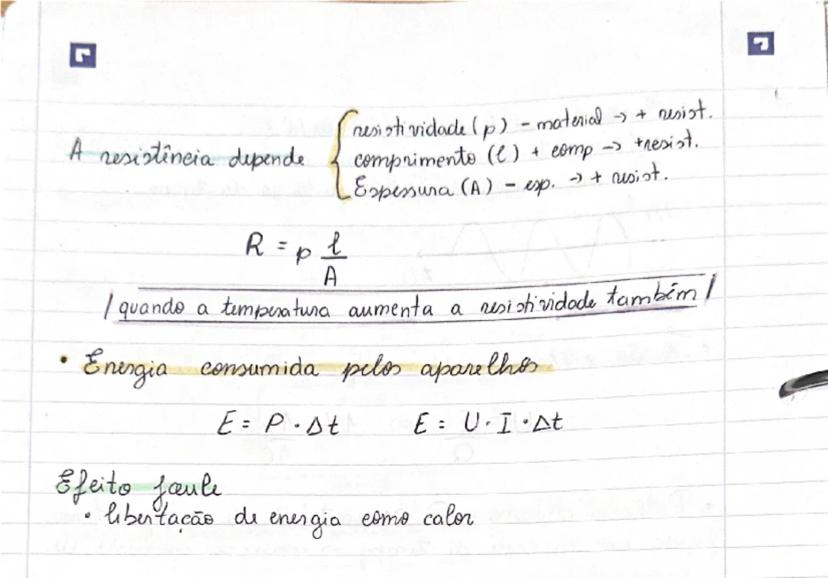 A resistência depende
resistividade (p) - material → + resist.
comprimento (l) + comp → + resist.
Espessura (A) - esp. → + resist.
R = p l/A
/ quando a temperatura aumenta a resistividade também /
• Energia consumida pelos aparelhos
E = P · Δt E = U · I · Δt
Efeito Joule
• libertação de energia como calor